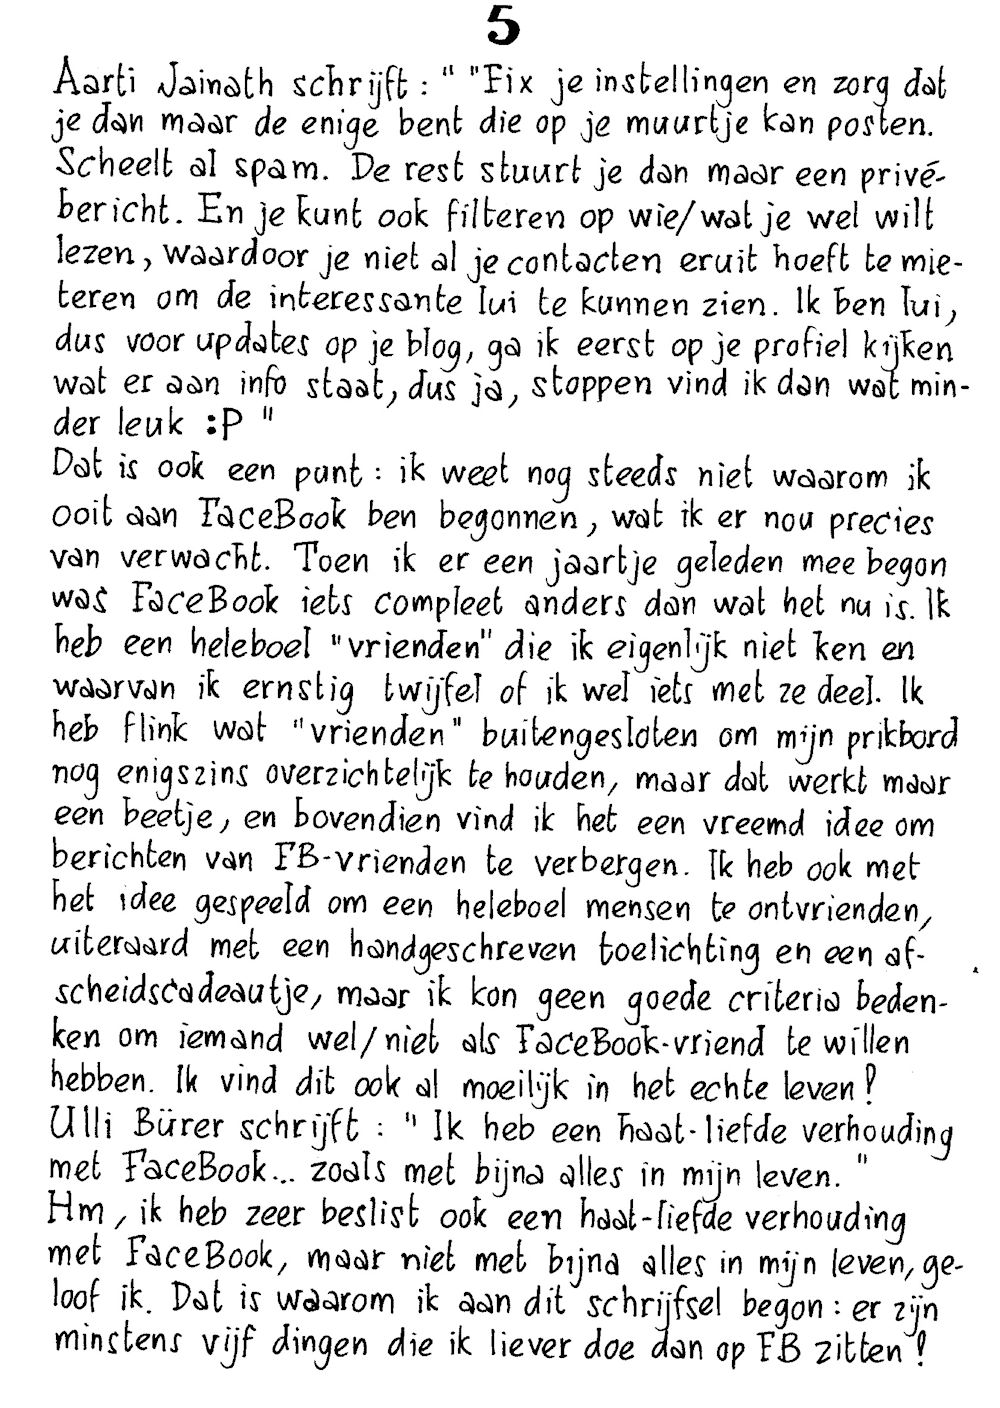 5
Aarti Jainath schrijft : " "Fix je instellingen en zorg dat
je dan maar de enige bent die op je muurtje kan posten.
Scheelt al spam. De rest stuurt je dan maar een privé-
bericht. En je kunt ook filteren op wie/wat je wel wilt
lezen, waardoor je niet al je contacten eruit hoeft te mie-
teren om de interessante lui te kunnen zien. Ik ben lui,
dus voor updates op je blog, ga ik eerst op je profiel kijken
wat er aan info staat, dus ja, stoppen vind ik dan wat min-
der leuk :P "
Dat is ook een punt : ik weet nog steeds niet waarom ik
ooit aan FaceBook ben begonnen, wat ik er nou precies
van verwacht. Toen ik er een jaartje geleden mee begon
was FaceBook iets compleet anders dan wat het nu is. Ik
heb een heleboel "vrienden" die ik eigenlijk niet ken en
waarvan ik ernstig twijfel of ik wel iets met ze deel. Ik
heb flink wat "vrienden" buitengesloten om mijn prikbord
nog enigszins overzichtelijk te houden, maar dat werkt maar
een beetje, en bovendien vind ik het een vreemd idee om
berichten van FB-vrienden te verbergen. Ik heb ook met
het idee gespeeld om een heleboel mensen te ontvrienden,
uiteraard met een handgeschreven toelichting en een af-
scheidscadeautje, maar ik kon geen goede criteria beden-
ken om iemand wel/niet als FaceBook-vriend te willen
hebben. Ik vind dit ook al moeilijk in het echte leven!
Ulli Bürer schrijft : " Ik heb een haat-liefde verhouding
met FaceBook... zoals met bijna alles in mijn leven. "
Hm, ik heb zeer beslist ook een haat-liefde verhouding
met FaceBook, maar niet met bijna alles in mijn leven, ge-
loof ik. Dat is waarom ik aan dit schrijfsel begon : er zijn
minstens vijf dingen die ik liever doe dan op FB zitten!